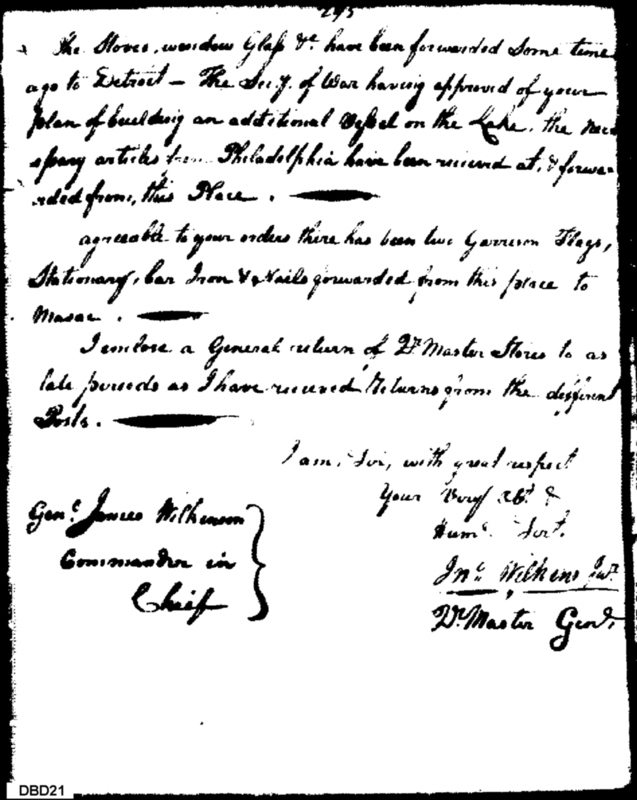 295
The Stoves, window Glass &c. have been forwarded some time
ago to Detroit — The Secy. of War having approved of your
plan of building an additional Vessel on the Lake. the nece
ssary articles from Philadelphia have been received at, & forwa-
rded from, this Place.
agreeable to your orders there has been two Garrison Flags,
Stationary, bar Iron & Nails forwarded from this place to
Massac.
I enclose a General return of Qr. Master Stores to as
late periods as I have received returns from the different
Posts.
I am, Sir, with great respect
Your Very Obt. &
Hume. Sert.
Genl. James Wilkinson
Commander in
Chief
Jno. Wilkins Junr.
Qr. Master Genl.
DBD21